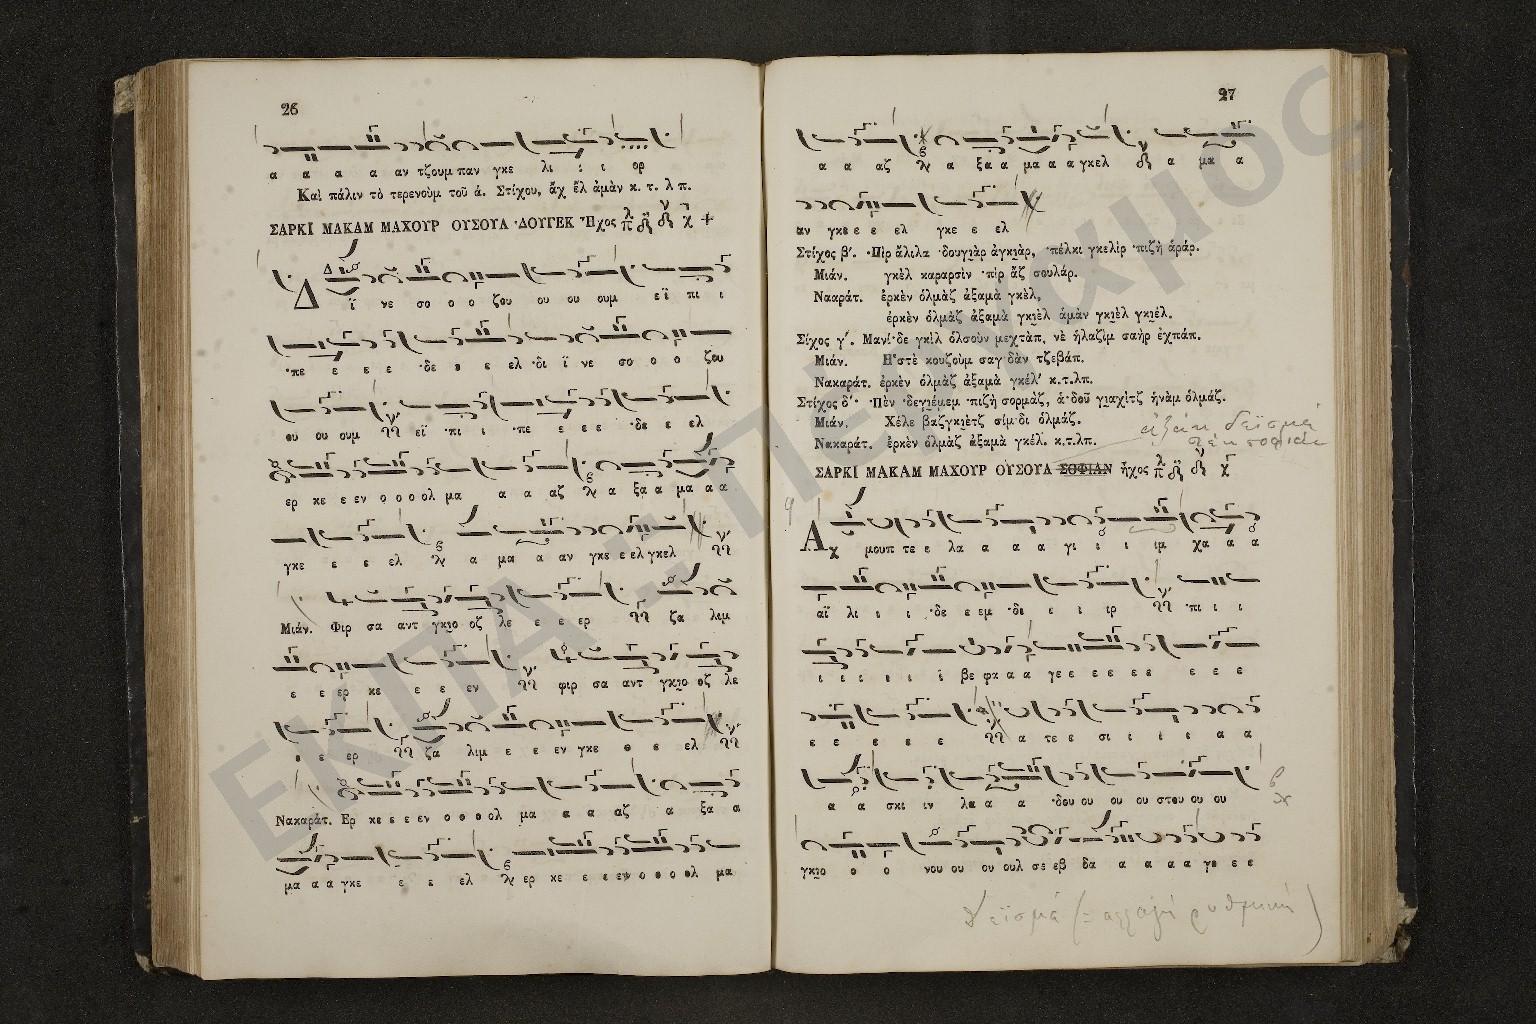 26
α α α α αν τζουμ παν γκε λι ι ι ορ
Καὶ πάλιν τὸ τερενοὺμ τοῦ ά. Στίχου, ἄχ ἔλ ἀμὰν κ. τ. λ π.
ΣΑΡΚΙ ΜΑΚΑΜ ΜΑΧΟΥΡ ΟΥΣΟΥΛ ·ΔΟΥΓΕΚ Ἦχος
Δ ϊ νε σο ο ο ζου ου ου ουμ εϊ πι ι
·πε ε ε ε ·δε ε ε ελ ·δι ϊ νε σο ο ο ζου
ου ου ουμ εϊ ·πι ι ·πε ε ε ε ·δε ε ελ
ερ κε ε εν ο ο ο ολ μα α α αζ α ξα α μα α α
γκε ε ε ε ελ α μα α αν γκε ε ελ γκελ
Μιάν. Φιρ σα αντ γκιο οζ λε ε ε ερ ζα λιμ
ε ε ερ κε ε ε εν φιρ σα αντ γκιο οζ λε
ε ε ερ ζα λιμ ε ε εν γκε ε ε ελ
Νακαράτ. Ερ κε ε ε εν ο ο ο ολ μα α α αζ α ξα α
μα α α γκε ε ε ελ ερ κε ε ε εν ο ο ο ολ μα
27
α α αζ α ξα α μα α α γκελ α μα α
αν γκε ε ε ελ γκε ε ελ
Στίχος β΄. ·Πὶρ ἄλιλα ·δουγιὰρ ἀγκιὰρ, ·πέλκι γκελὶρ ·πιζὴ ἀράρ.
Μιάν. γκὲλ καραρσὶν ·πὶρ ἄζ σουλάρ.
Νααράτ. ἐρκὲν ὀλμὰζ ἀξαμὰ γκὲλ,
ἐρκὲν ὀλμὰζ ἀξαμὰ γκιὲλ ἀμὰν γκιὲλ γκιέλ.
Σίχος γ΄. Μανί·δε γκὶλ ὀλσοὺν μεχτὰπ, νὲ ἠλαζὶμ σαὴρ ἐχπάπ.
Μιάν. Ἠστὲ κουζοὺμ σαγ·δὰν τζεβάπ.
Νακαράτ. ἐρκὲν ὀλμὰζ ἀξαμὰ γκέλ΄ κ.τ.λπ.
Στίχος δ΄· ·Πὲν ·δεγιέμεμ ·πιζὴ σορμὰζ, ἀ·δοῦ γιαχὶτζ ἠνὰμ ὀλμάζ.
Μιάν. Χέλε βαζγκιὲτζ σίμ·δι ὀλμάζ.
Νακαράτ. ἐρκὲν ὀλμὰζ ἀξαμὰ γκέλ. κ.τ.λπ.
ΣΑΡΚΙ ΜΑΚΑΜ ΜΑΧΟΥΡ ΟΥΣΟΥΛ ΣΟΦΙΑΝ ἦχος
Αχ μουπ τε ε λα α α α γι ι ι ιμ χα α α
αϊ λι ι ι ·δε ε εμ ·δι ι ι ιρ ·πι ι ι
ι ι ι ι ι βε φα α α γε ε ε ε ε ε ε ε
ε ε ε ε ε ε α τε ε σι ι ι ι α α
α α σκι ιν λα α α ·δου ου ου ου στου ου ου
γκιο ο ο νου ου ου ουλ σε εβ δα α α α α γε ε ε